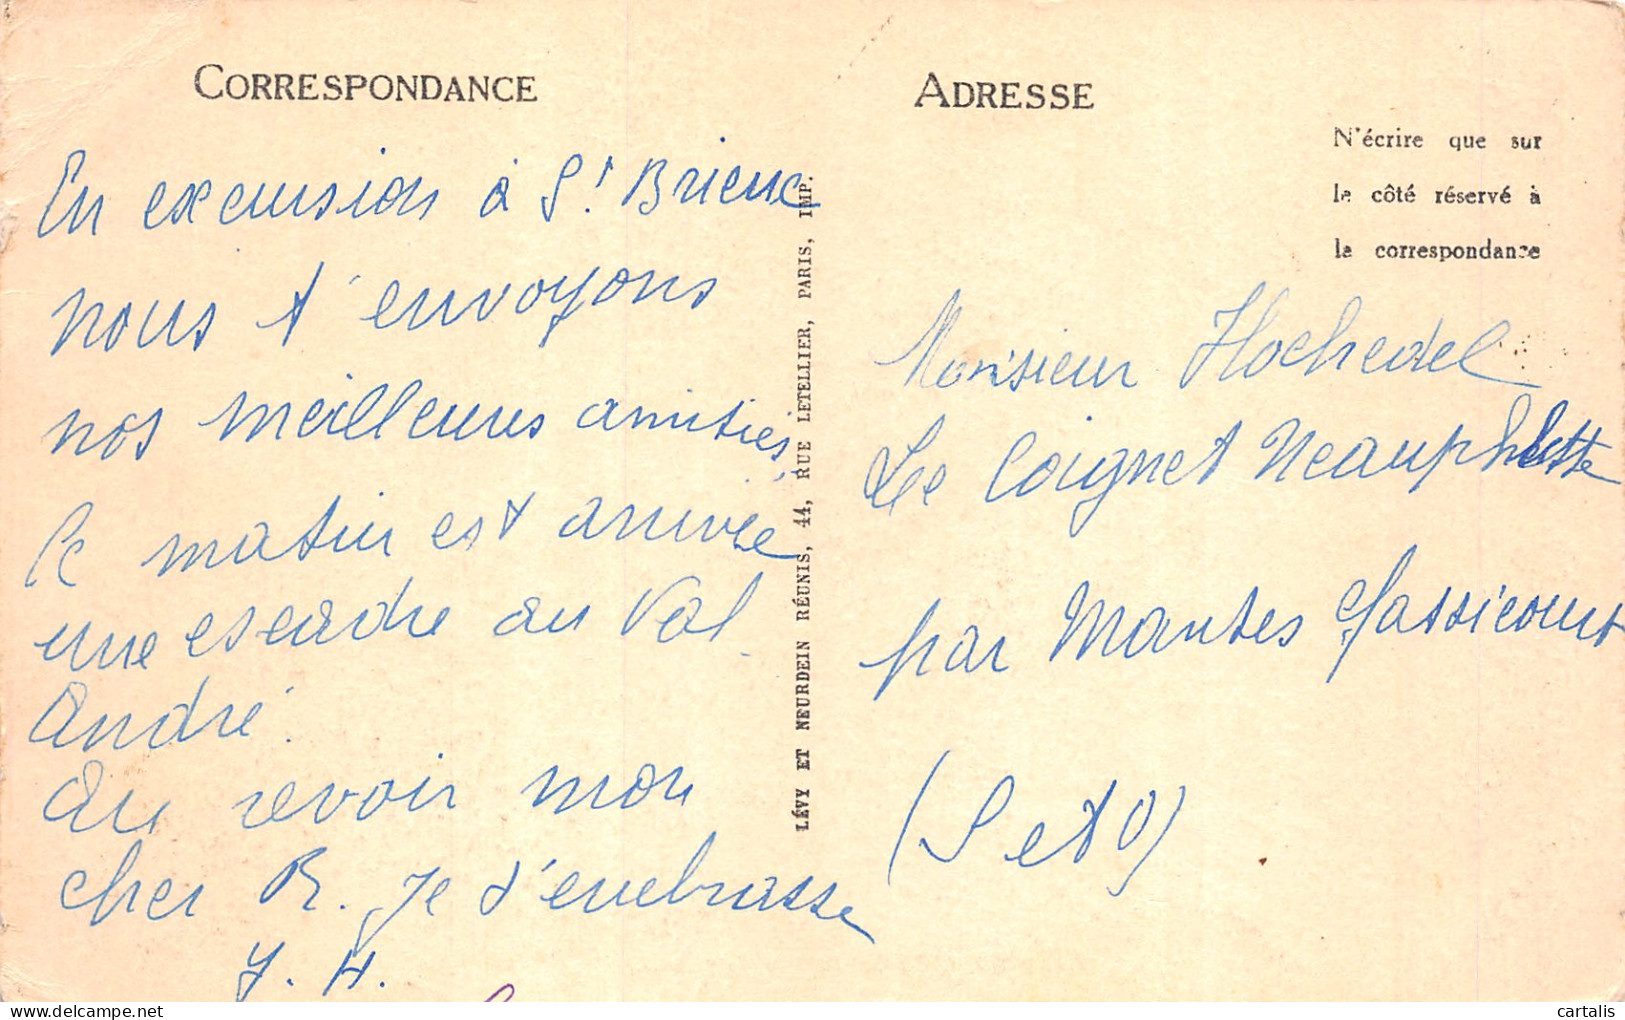 CORRESPONDANCE
En excursion à St Brieuc
nous t'envoyons
nos meilleures amitiés,
Ce matin est arrivée
une escadre au Val
André.
Au revoir mon
cher R. Je t'embrasse
J. H.
LÉVY ET NEURDEIN RÉUNIS, 44, RUE LETELLIER, PARIS, IMP.
ADRESSE
N'écrire que sur
le côté réservé à
la correspondance
Monsieur Hochedel
Le Coignet Neauphlette
par Mantes Gassicourt
(S et O)
cartalis